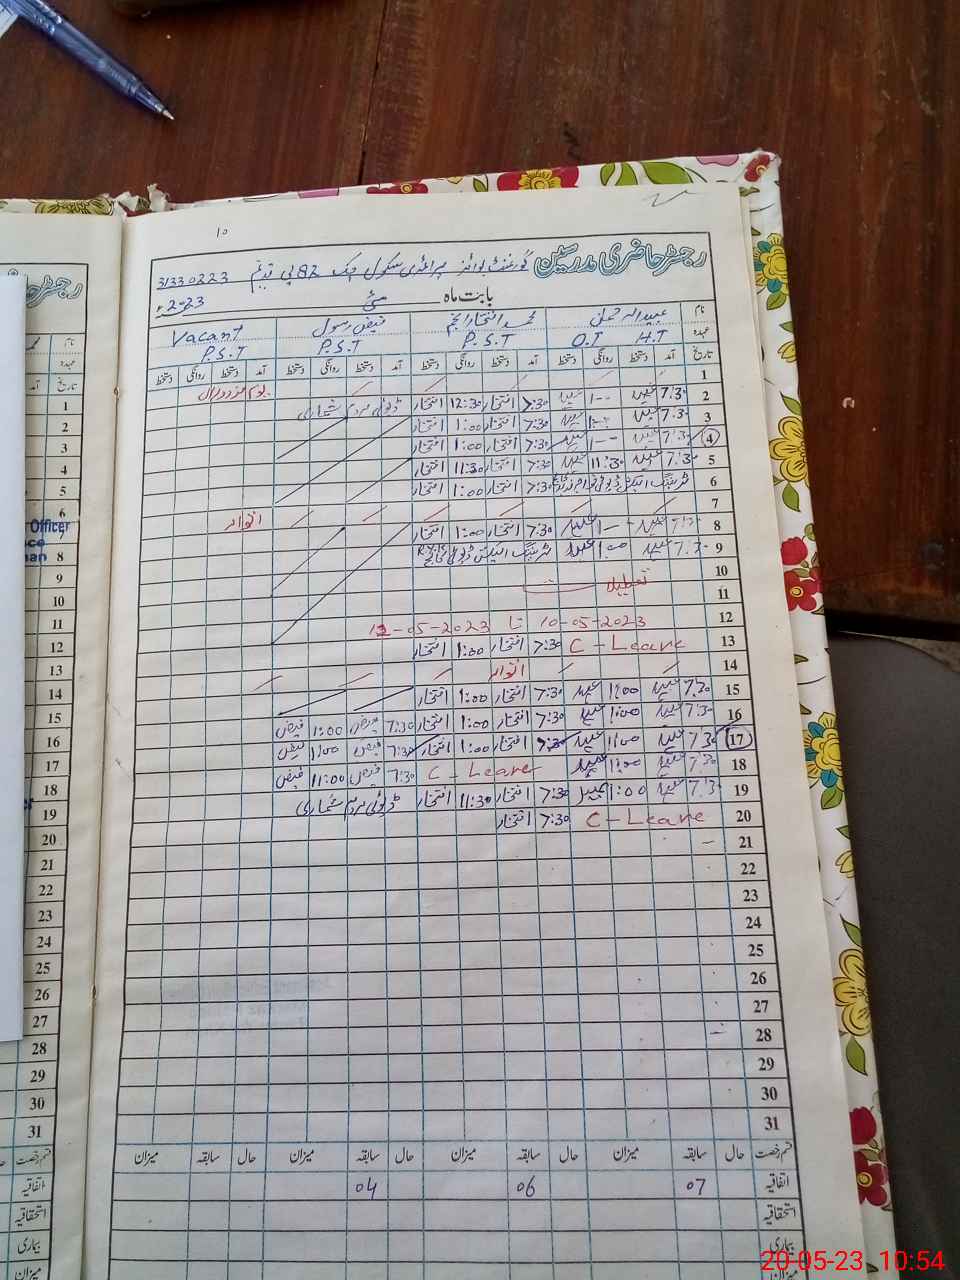 10
رجسٹر حاضری مدرسین گورنمنٹ بوائز پرائمری سکول چک 82 پی قدیم 31330223
بابت ماہ مئی 2023ء
نام عبیدالرحمٰن محمد افتخار انجم فیض رسول Vacant
عہدہ H.T O.T P.S.T P.S.T P.S.T
تاریخ آمد دستخط روانگی دستخط آمد دستخط روانگی دستخط آمد دستخط روانگی دستخط آمد دستخط روانگی دستخط
1 یوم مزدوراں
2 7:30 عبید 1-- عبید 7:30 افتخار 12:30 افتخار ڈیوٹی مردم شماری
3 7:30 عبید 1:00 عبید 7:30 افتخار 1:00 افتخار
4 7:30 عبید 1-- عبید 7:30 افتخار 1:00 افتخار
5 7:30 عبید 11:30 عبید 7:30 افتخار 11:30 افتخار
6 ٹریننگ الیکشن ڈیوٹی 7:30 افتخار 1:00 افتخار
7 اتوار
8 7:30 عبید 1-- عبید 7:30 افتخار 1:00 افتخار
9 7:30 عبید 1:00 عبید ٹریننگ الیکشن ڈیوٹی
10 تعطیل
11
12 10-05-2023 تا 12-05-2023
13 C-Leave 7:30 افتخار 1:00 افتخار
14 اتوار
15 7:30 عبید 1:00 عبید 7:30 افتخار 1:00 افتخار
16 7:30 عبید 1:00 عبید 7:30 افتخار 1:00 افتخار 7:30 فیض 1:00 فیض
17 7:30 عبید 1:00 عبید 7:30 افتخار 1:00 افتخار 7:30 فیض 1:00 فیض
18 7:30 عبید 1:00 عبید C-Leave 7:30 فیض 11:00 فیض
19 7:30 عبید 1:00 عبید 7:30 افتخار 11:30 افتخار ڈیوٹی مردم شماری
20 C-Leave 7:30 افتخار
21
22
23
24
25
26
27
28
29
30
31
قسم رخصت حال سابقہ میزان حال سابقہ میزان حال سابقہ میزان حال سابقہ میزان
اتفاقیہ 07 06 04
استحقاقیہ
بیماری
میزان
نام
عہدہ
تاریخ آمد
1
2
3
4
5
6
Officer
7
8
9
10
11
12
13
14
15
16
17
18
19
20
21
22
23
24
25
26
27
28
29
30
31
قسم رخصت
اتفاقیہ
استحقاقیہ
بیماری
میزان
20-05-23 10:54